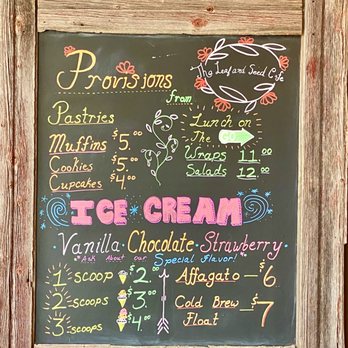 Provisions
from
The Leaf and Seed Cafe
Pastries
Muffins $5.00
Cookies $5.00
Cupcakes $4.00
Lunch on
The Go
Wraps 11.00
Salads 12.00
ICE CREAM
Vanilla · Chocolate · Strawberry
*Ask About our Special Flavor!*
1 SCOOP $2.00
2 SCOOPS $3.00
3 SCOOPS $4.00
Affagato — $6
Cold Brew — $7
Float